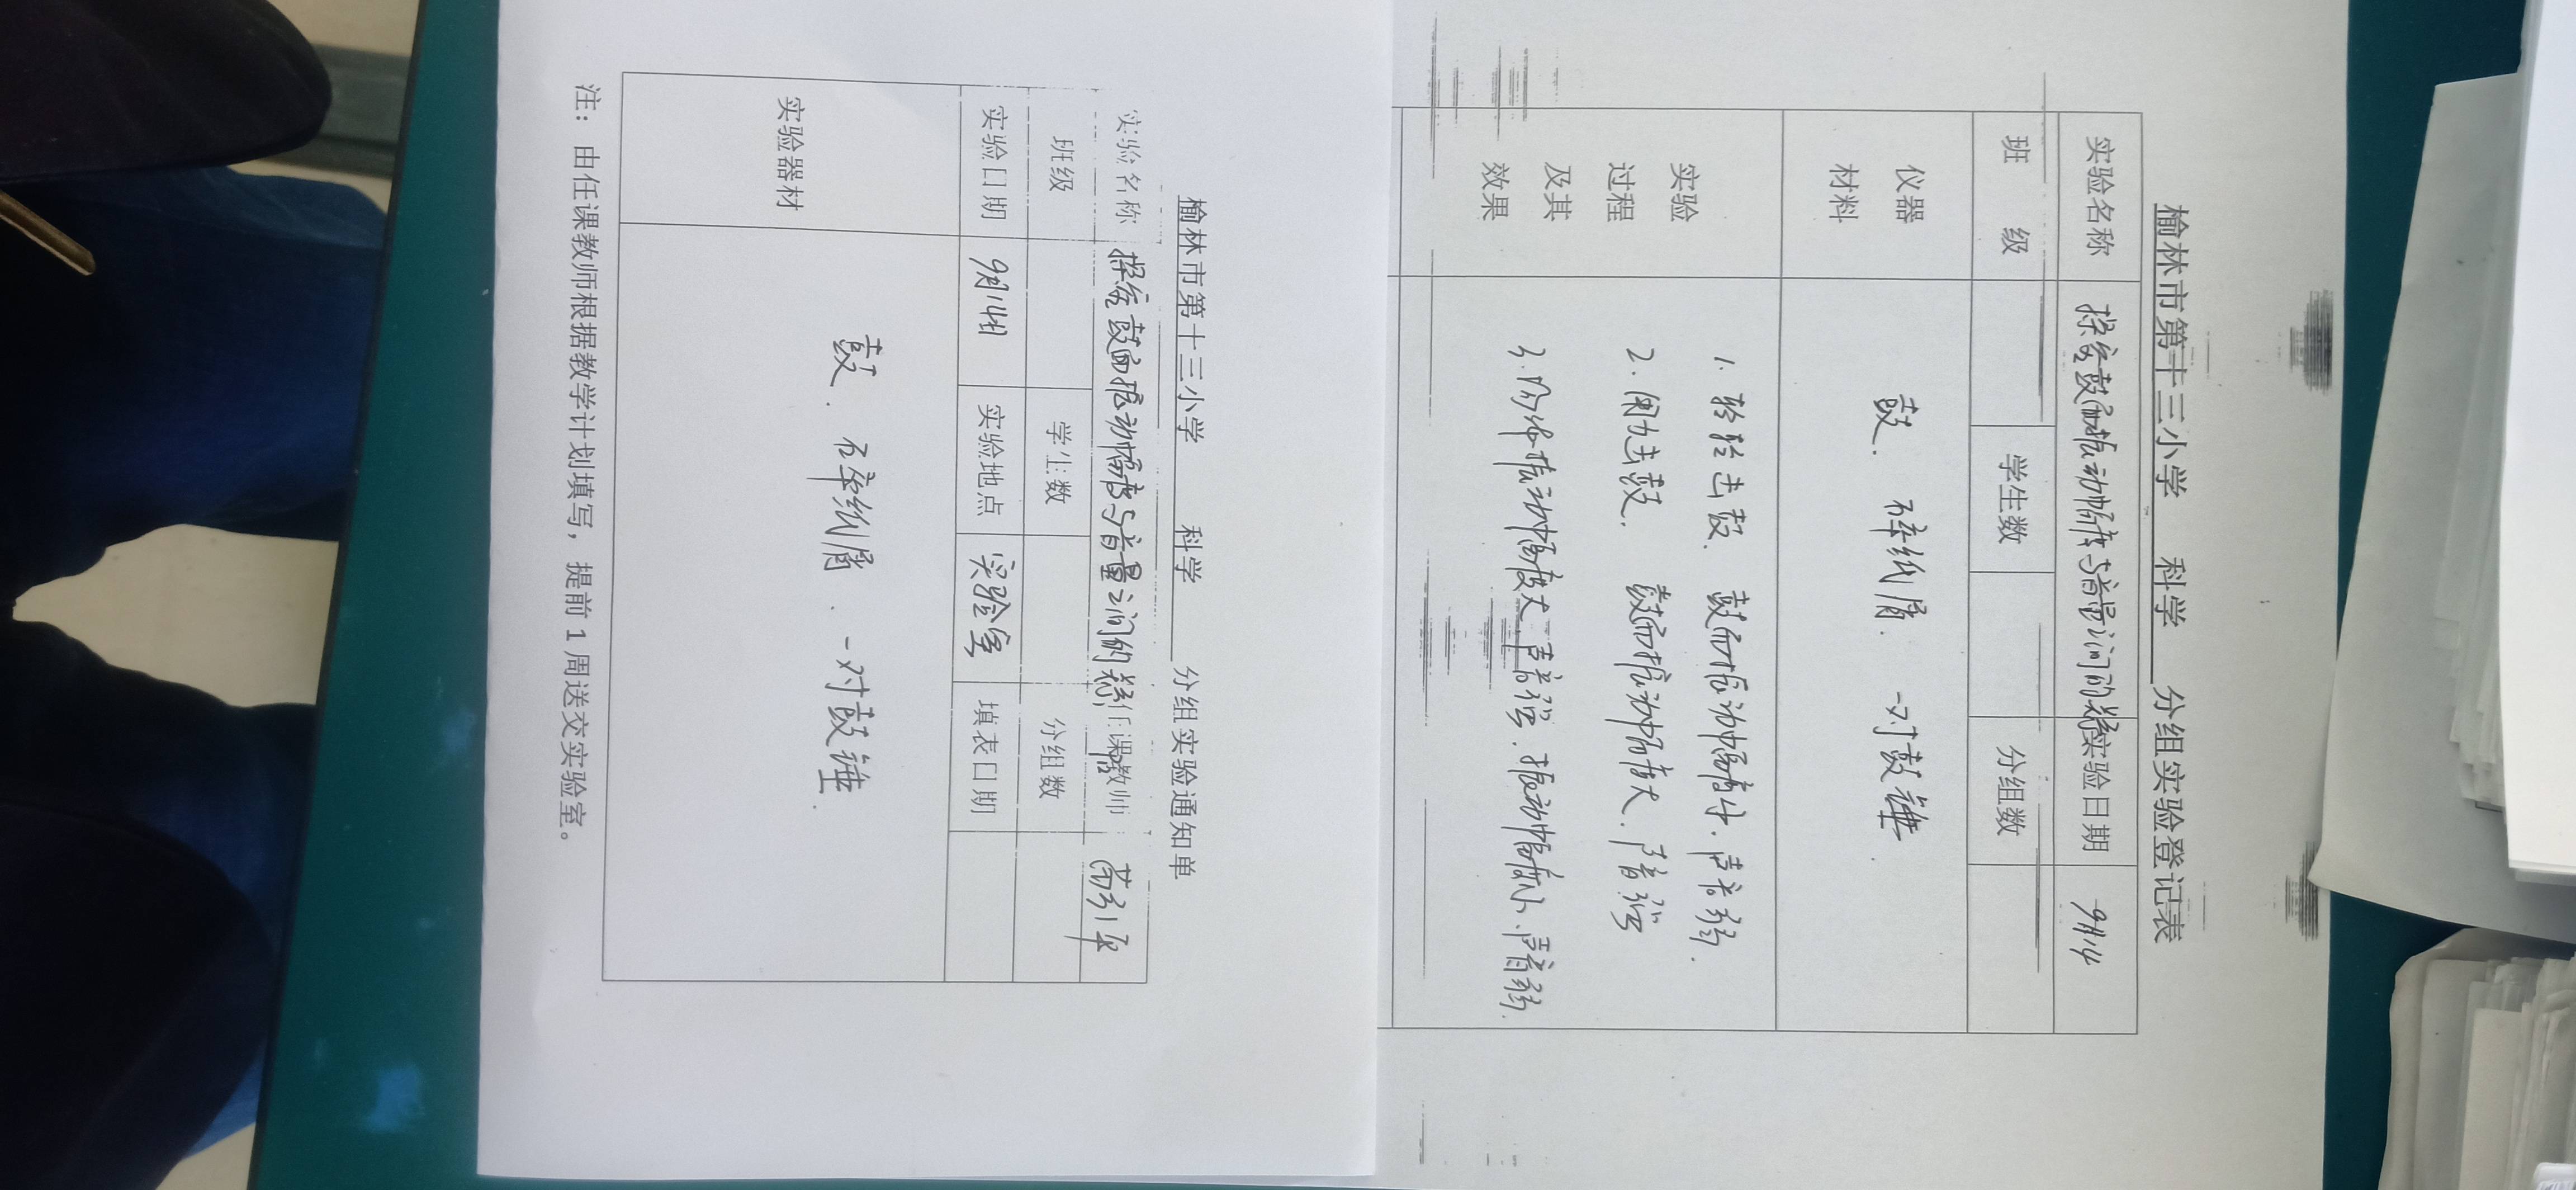 榆林市第十三小学 科学 分组实验登记表
实验名称 探究鼓面振动幅度与音量之间的关系 实验日期 9月14
班 级 学生数 分组数
仪器
材料
鼓. 碎纸屑. 一对鼓锤.
实验
过程
及其
效果
1. 轻轻击鼓. 鼓面振动幅度小. 声音弱.
2. 用力击鼓. 鼓面振动幅度大. 声音强
3. 物体振动幅度大. 声音强. 振动幅度小. 声音弱.
榆林市第十三小学 科学 分组实验通知单
实验名称 探究鼓面振动幅度与音量之间的关系 任课教师
班级 学生数 分组数
实验日期 9月14日 实验地点 实验室 填表日期
实验器材 鼓. 碎纸屑. 一对鼓锤.
注：由任课教师根据教学计划填写，提前1周送交实验室。